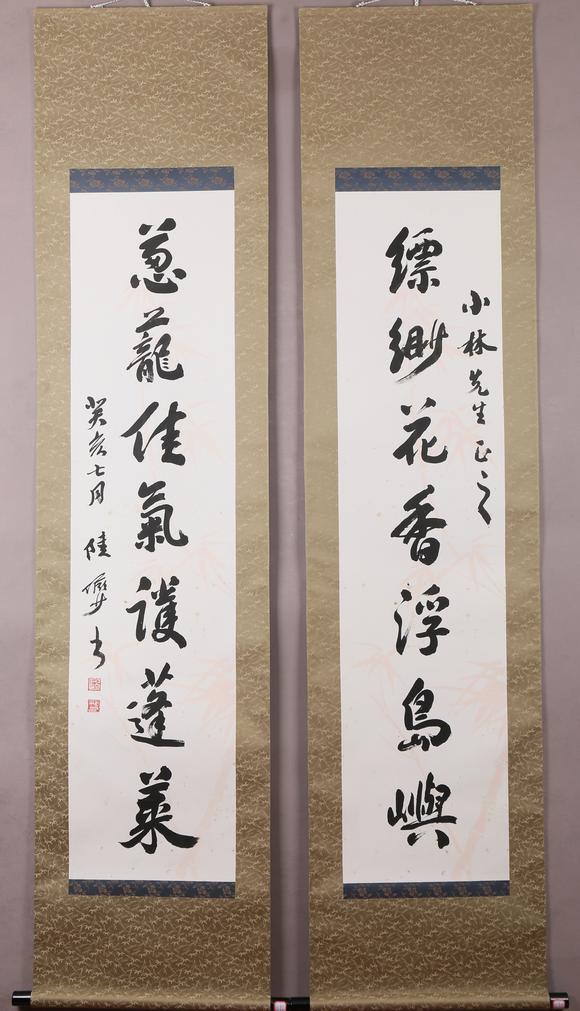 缥緲花香浮島嶼
小林先生正之
葱蘢佳氣護蓬萊
癸亥七月 陸儼少